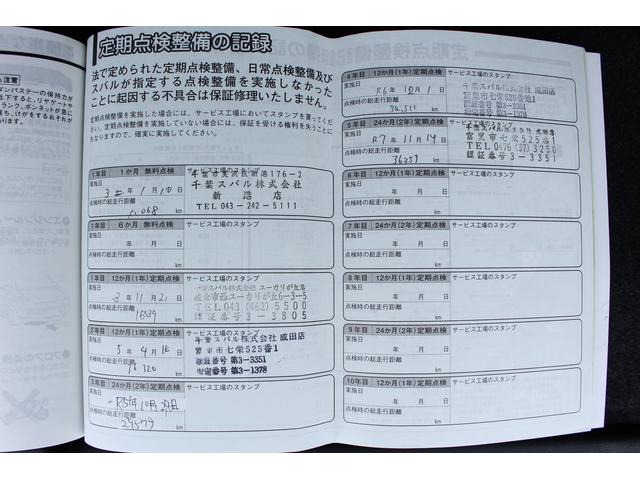 定期点検整備の記録
法で定められた定期点検整備、日常点検整備及び
スバルが指定する点検整備を実施しなかった
ことに起因する不具合は保証修理いたしません。
定期点検整備を実施した場合には、サービス工場においてスタンプを貰ってくだ
さい。定期点検整備を実施していない場合には、保証を受ける権利を失うことに
もなりますので、確実に実施してください。
1年目 1か月 無料点検 サービス工場のスタンプ
実施日 年 1月10日
点検時の総走行距離 km
176-2
千葉スバル株式会社
新 沼店
TEL 043-242-5111
1年目 6か月 無料点検 サービス工場のスタンプ
実施日 年 月 日
点検時の総走行距離 km
1年目 12か月(1年)定期点検 サービス工場のスタンプ
実施日 3年11月21日
点検時の総走行距離 km
千葉スバル株式会社 ユーカリが丘店
佐倉市西ユーカリが丘6-3-5
TEL 043(462)5500
認証番号 3-3805
2年目 12か月(1年)定期点検 サービス工場のスタンプ
実施日 5年4月16日
点検時の総走行距離 km
千葉スバル株式会社 成田店
富里市七栄525番1
認証番号 第3-3351
指定番号 第3-1378
3年目 24か月(2年)定期点検 サービス工場のスタンプ
実施日 R5年10月
点検時の総走行距離 29579 km
4年目 12か月(1年)定期点検 サービス工場のスタンプ
実施日 R6年10月1日
点検時の総走行距離 34,511 km
千葉スバル株式会社 成田店
富里市七栄525番地1
認証番号 第3-3351
指定番号 第3-1378
5年目 24か月(2年)定期点検 サービス工場のスタンプ
実施日 R7年11月14日
点検時の総走行距離 36259 km
千葉スバル株式会社 成田店
富里市七栄525番1
TEL 0476(37)3250
認証番号 3-3351
6年目 12か月(1年)定期点検 サービス工場のスタンプ
実施日 年 月 日
点検時の総走行距離 km
7年目 24か月(2年)定期点検 サービス工場のスタンプ
実施日 年 月 日
点検時の総走行距離 km
8年目 12か月(1年)定期点検 サービス工場のスタンプ
実施日 年 月 日
点検時の総走行距離 km
9年目 24か月(2年)定期点検 サービス工場のスタンプ
実施日 年 月 日
点検時の総走行距離 km
10年目 12か月(1年)定期点検 サービス工場のスタンプ
実施日 年 月 日
点検時の総走行距離 km